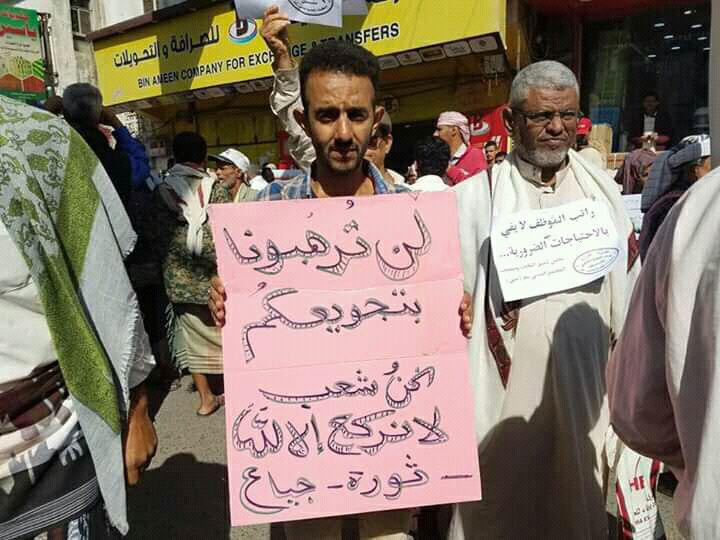 للصرافة والتحويلات
BIN AMEEN COMPANY FOR EXCHANGE & TRANSFERS
لن تُرهبونا
بتجويعكمُ
نحنُ شعب
لا نركع إلا لله
ثورة - جياع
راتب الموظف لا يفي
بالاحتياجات الضرورية...